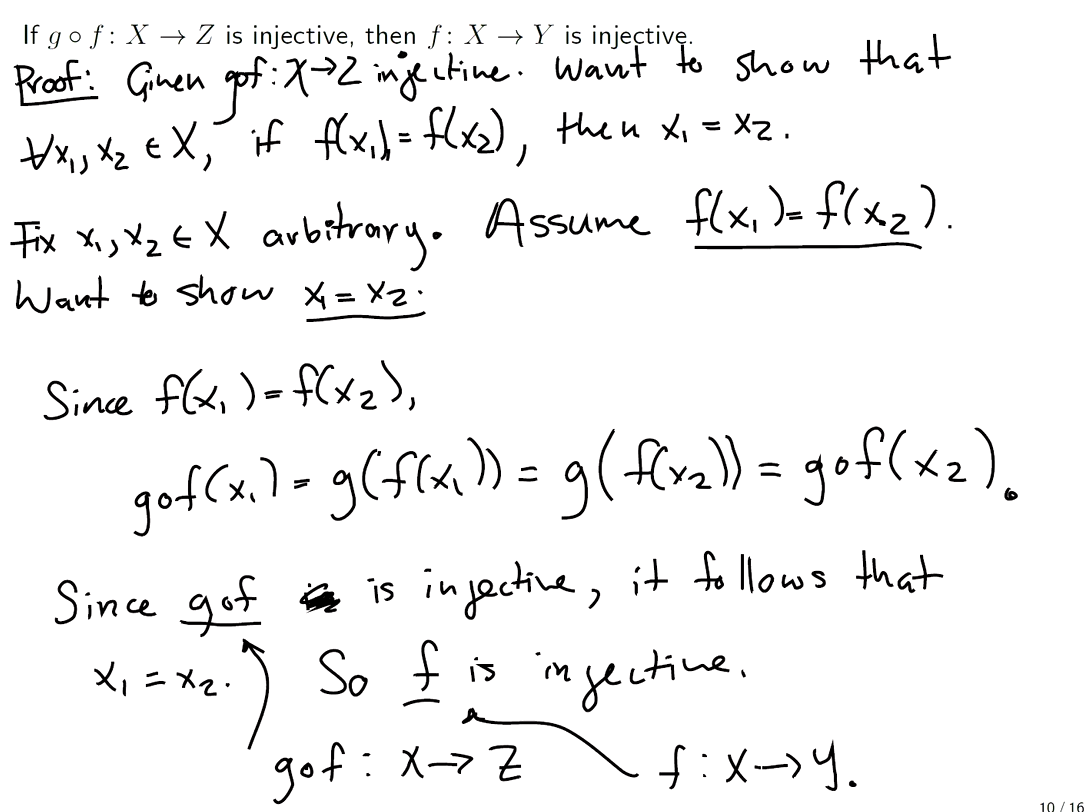 If g ∘ f : X → Z is injective, then f : X → Y is injective.
Proof: Given g∘f : X → Z injective. Want to show that
∀x₁, x₂ ∈ X, if f(x₁) = f(x₂), then x₁ = x₂.
Fix x₁, x₂ ∈ X arbitrary. Assume f(x₁) = f(x₂).
Want to show x₁ = x₂.
Since f(x₁) = f(x₂),
g∘f(x₁) = g(f(x₁)) = g(f(x₂)) = g∘f(x₂).
Since g∘f is injective, it follows that
x₁ = x₂. So f is injective.
g∘f : X → Z f : X → Y.
10 / 16